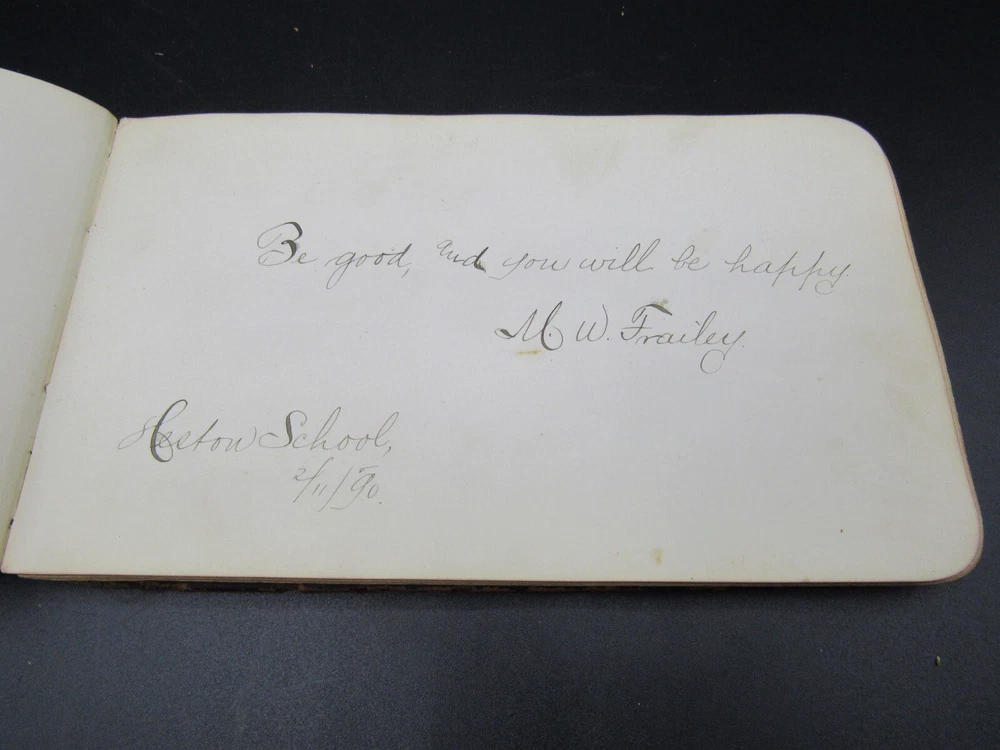 Be good, and you will be happy.
M. W. Frailey.
Heston School,
2/11/90.